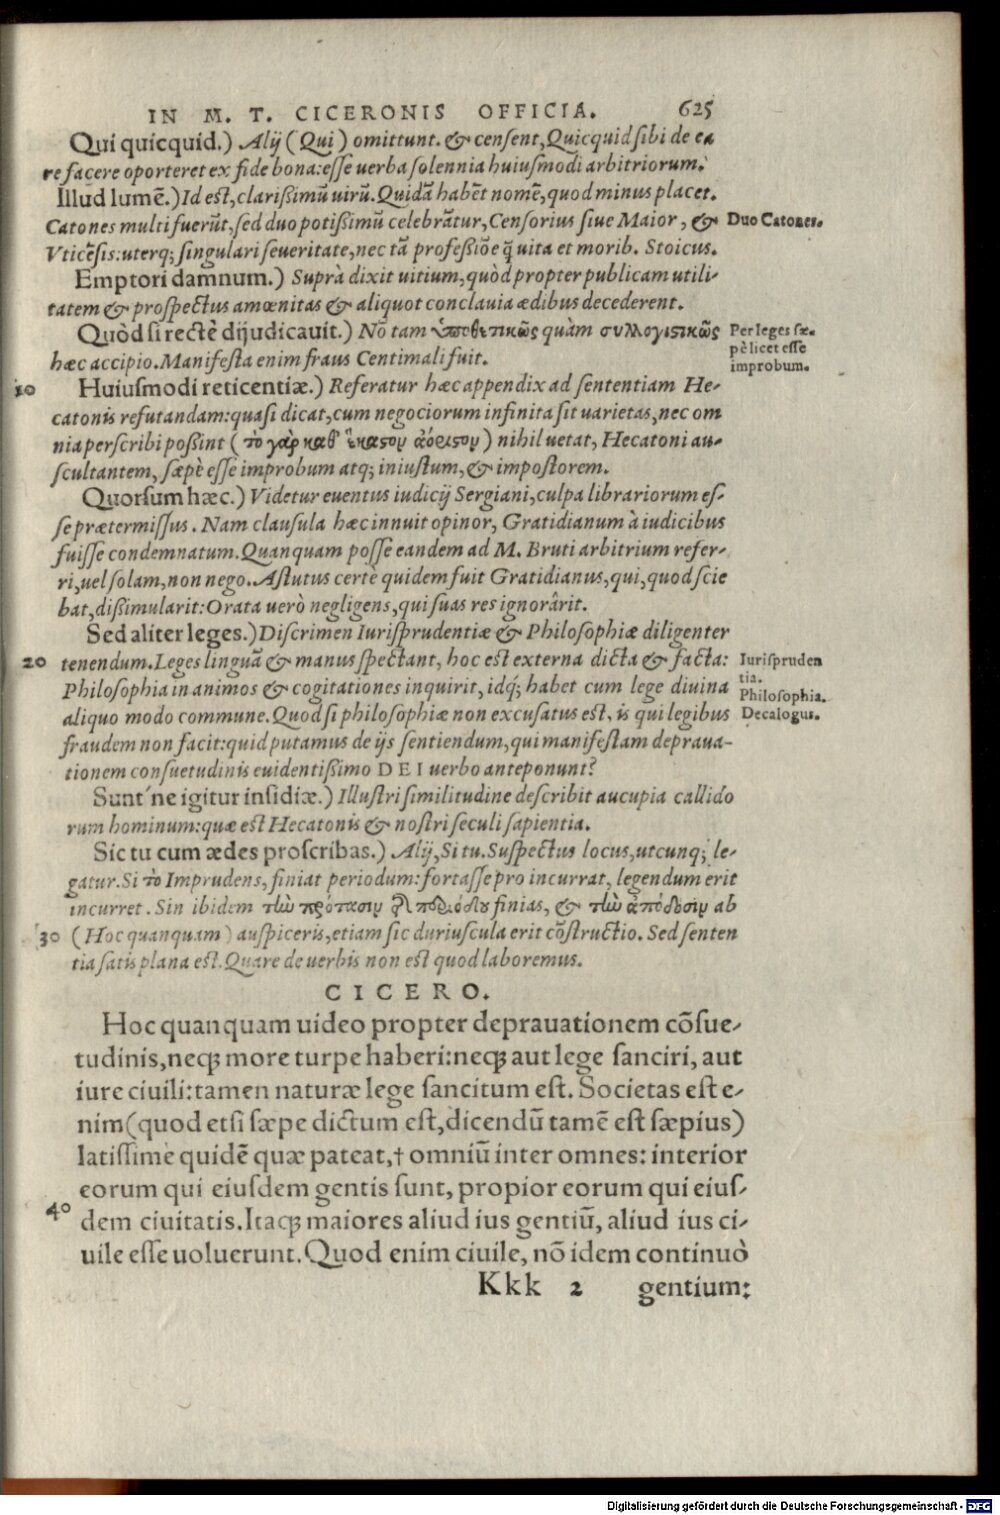 IN M. T. CICERONIS OFFICIA. 625
Qui quicquid.) Alij (Qui) omittunt. & censent, Quicquid sibi de ea
re facere oporteret ex fide bona: esse uerba solennia huiusmodi arbitriorum.
Illud lumẽ.) Id est, clarißimũ uirũ. Quidã habẽt nomẽ, quod minus placet.
Catones multi fuerũt, sed duo potißimũ celebrãtur, Censorius siue Maior, &
Duo Catones.
Vticẽsis: uterq; singulari seueritate, nec tã profeßiõe q̃ uita et morib. Stoicus.
Emptori damnum.) Suprà dixit uitium, quòd propter publicam utili-
tatem & prospectus amœnitas & aliquot conclauia ædibus decederent.
Quòd si rectè dijudicauit.) Nõ tam ὑποθετικῶς quàm συλλογιστικῶς
Per leges sæ-
hæc accipio. Manifesta enim fraus Centimali fuit.
pè licet esse
improbum.
10 Huiusmodi reticentiæ.) Referatur hæc appendix ad sententiam He-
catonis refutandam: quasi dicat, cum negociorum infinita sit uarietas, nec om
nia perscribi poßint (τὸ γὰρ καθ' ἕκαστον ἀόριστον) nihil uetat, Hecatoni au-
scultantem, sæpè esse improbum atq; iniustum, & impostorem.
Quorsum hæc.) Videtur euentus iudicij Sergiani, culpa librariorum es-
se prætermissus. Nam clausula hæc innuit opinor, Gratidianum à iudicibus
fuisse condemnatum. Quanquam posse eandem ad M. Bruti arbitrium refer-
ri, uel solam, non nego. Astutus certè quidem fuit Gratidianus, qui, quod scie
bat, dißimularit: Orata uerò negligens, qui suas res ignorârit.
Sed aliter leges.) Discrimen Iurisprudentiæ & Philosophiæ diligenter
20 tenendum. Leges linguã & manus spectant, hoc est externa dicta & facta:
Iurispruden
tia.
Philosophia in animos & cogitationes inquirit, idq́; habet cum lege diuina
Philosophia.
aliquo modo commune. Quod si philosophiæ non excusatus est, is qui legibus
Decalogus.
fraudem non facit: quid putamus de ijs sentiendum, qui manifestam depraua-
tionem consuetudinis euidentißimo DEI uerbo anteponunt?
Sunt'ne igitur insidiæ.) Illustri similitudine describit aucupia callido
rum hominum: quæ est Hecatonis & nostri seculi sapientia.
Sic tu cum ædes proscribas.) Alij, Si tu. Suspectus locus, utcunq; le-
gatur. Si τὸ Imprudens, finiat periodum: fortasse pro incurrat, legendum erit
incurret. Sin ibidem τὴν πρότασιν τῆς περιόδου finias, & τὴν ἀπόδοσιν ab
30 (Hoc quanquam) auspiceris, etiam sic duriuscula erit cõstructio. Sed senten
tia satis plana est. Quare de uerbis non est quod laboremus.
CICERO.
Hoc quanquam uideo propter deprauationem cõsue-
tudinis, neq; more turpe haberi: neq; aut lege sanciri, aut
iure ciuili: tamen naturæ lege sancitum est. Societas est e-
nim (quod etsi sæpe dictum est, dicendũ tamẽ est sæpius)
latissimè quidẽ quæ pateat, † omniũ inter omnes: interior
eorum qui eiusdem gentis sunt, propior eorum qui eius-
40 dem ciuitatis. Itaq; maiores aliud ius gentiũ, aliud ius ci-
uile esse uoluerunt. Quod enim ciuile, nõ idem continuò
Kkk 2 gentium:
Digitalisierung gefördert durch die Deutsche Forschungsgemeinschaft - DFG